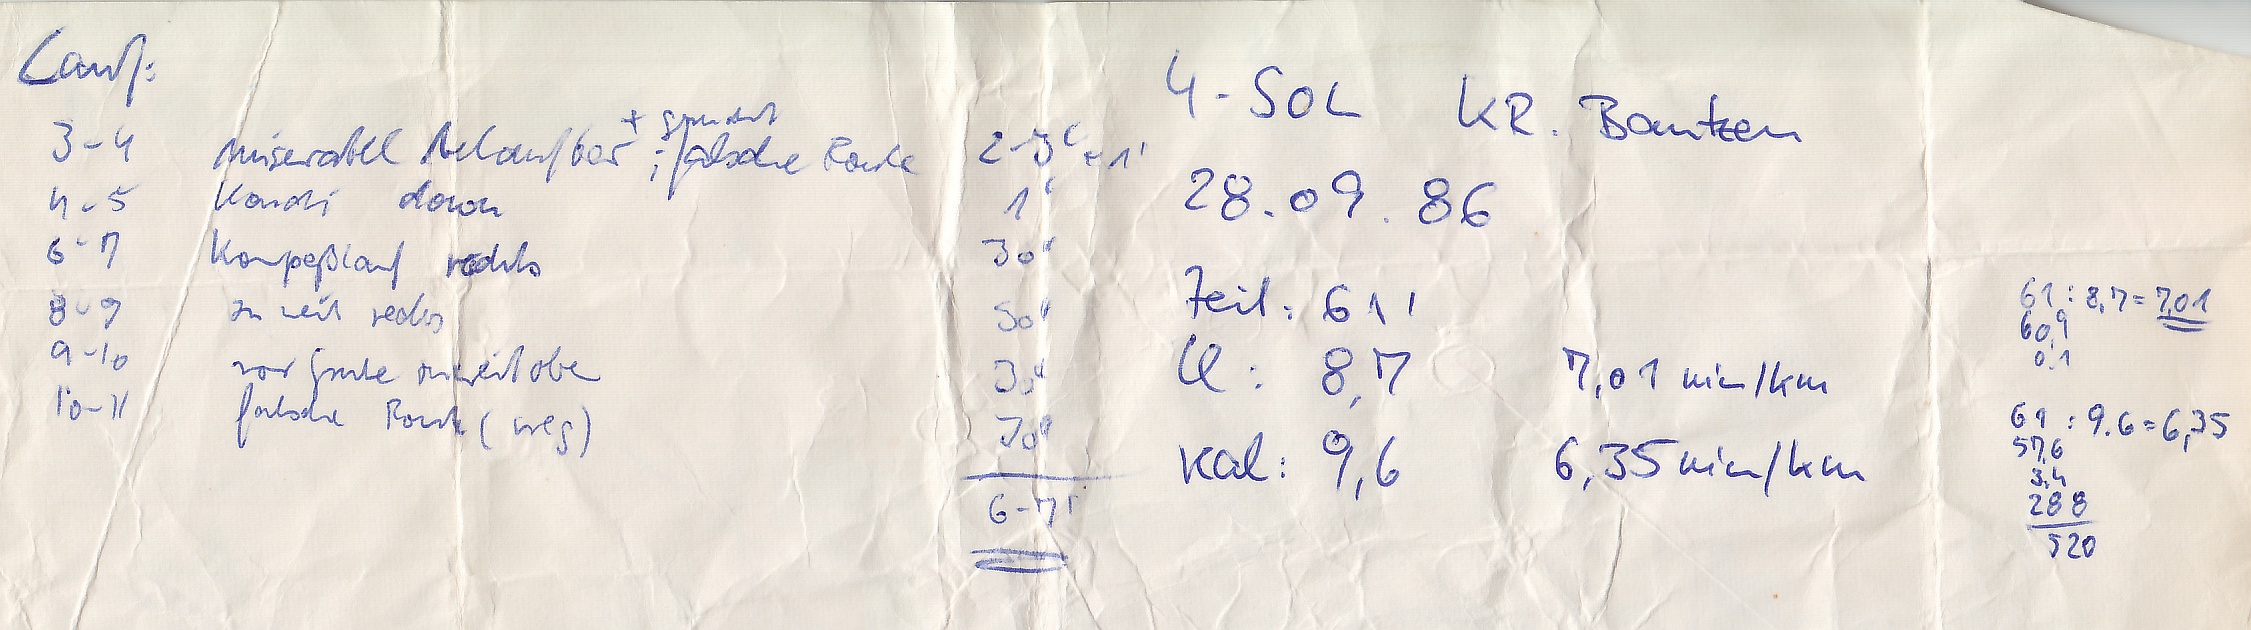 Lauf:
3-4 miserabel belaufbar + gesucht ; falsche Route 2-3' + 1'
4-5 Kondi down 1'
6-7 Kompaßlauf rechts 30"
8-9 zu weit rechts 50"
9-10 vor Grube zu weit oben 30"
10-11 falsche Route (Weg) 30"
6-7'
4-SOL KR. Bautzen
28.09.86
Zeit: 61'
8,7 7,01 min/km
Kal: 9,6 6,35 min/km
61 : 8,7 = 7,01
60,9
0,1
61 : 9.6 = 6,35
57,6
3,4
288
520